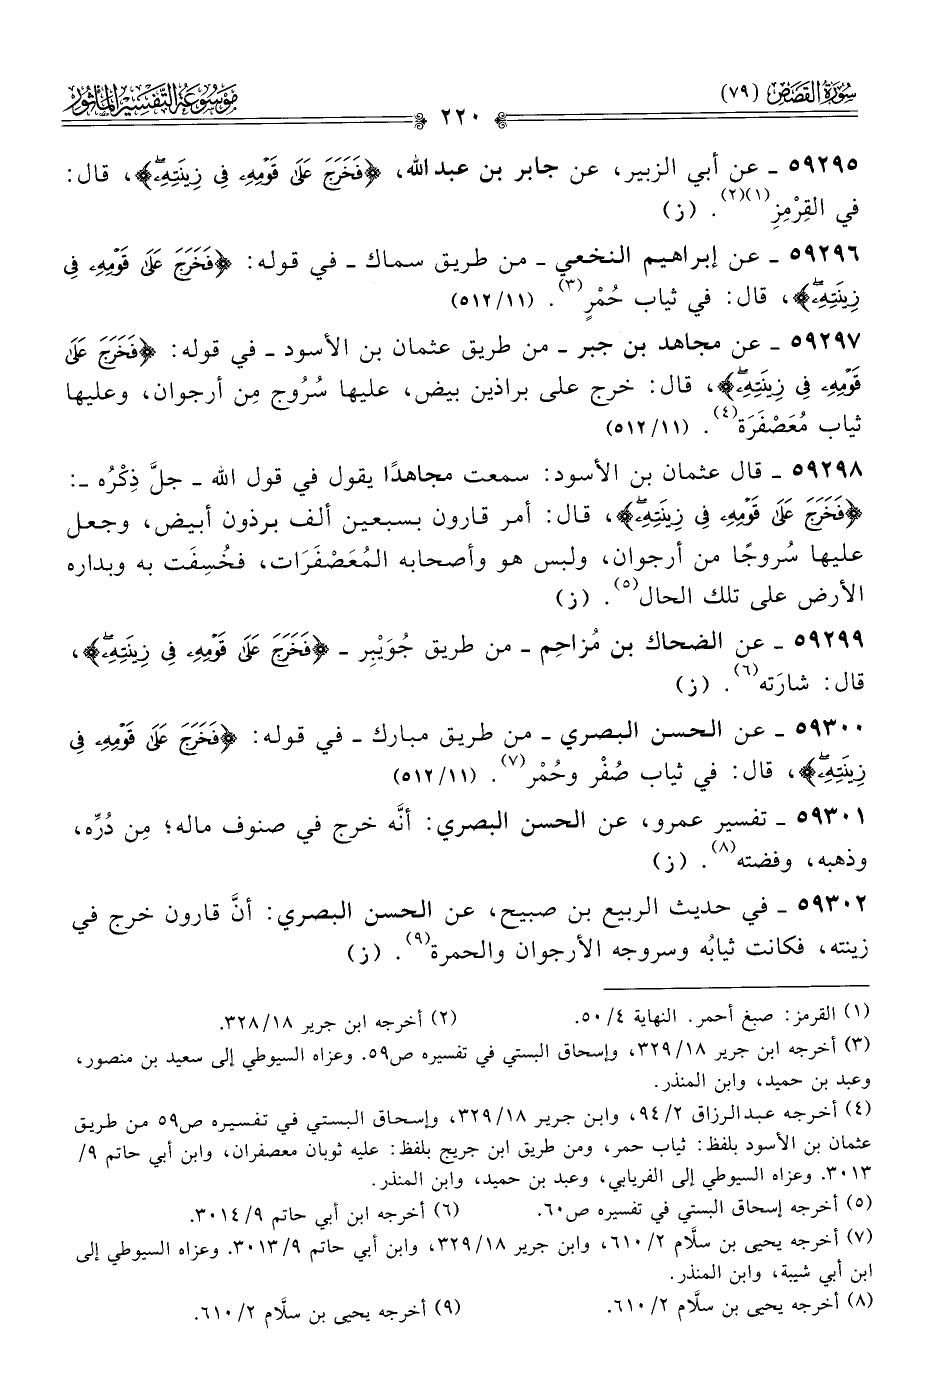 سُورَةُ القَصَصِ (٧٩)
٢٢٠
مَوْسُوعَةُ التَّفْسِيرِ المَأْثُورِ
٥٩٢٩٥ ـ عن أبي الزبير، عن جابر بن عبد الله، ﴿فَخَرَجَ عَلَىٰ قَوْمِهِۦ فِى زِينَتِهِۦۖ﴾، قال:
في القِرْمِزِ(١)(٢). (ز)
٥٩٢٩٦ ـ عن إبراهيم النخعي ـ من طريق سماك ـ في قوله: ﴿فَخَرَجَ عَلَىٰ قَوْمِهِۦ فِى
زِينَتِهِۦۖ﴾، قال: في ثياب حُمْرٍ(٣). (٥١٢/١١)
٥٩٢٩٧ ـ عن مجاهد بن جبر ـ من طريق عثمان بن الأسود ـ في قوله: ﴿فَخَرَجَ عَلَىٰ
قَوْمِهِۦ فِى زِينَتِهِۦۖ﴾، قال: خرج على براذين بيض، عليها سُرُوج مِن أرجوان، وعليها
ثياب مُعَصْفَرَة(٤). (٥١٢/١١)
٥٩٢٩٨ ـ قال عثمان بن الأسود: سمعت مجاهدًا يقول في قول الله ـ جلَّ ذِكْرُه ـ:
﴿فَخَرَجَ عَلَىٰ قَوْمِهِۦ فِى زِينَتِهِۦۖ﴾، قال: أمر قارون بسبعين ألف برذون أبيض، وجعل
عليها سُروجًا من أرجوان، ولبس هو وأصحابه المُعَصْفَرَات، فخُسِفَت به وبداره
الأرض على تلك الحال(٥). (ز)
٥٩٢٩٩ ـ عن الضحاك بن مُزاحِم ـ من طريق جُوَيْبِر ـ ﴿فَخَرَجَ عَلَىٰ قَوْمِهِۦ فِى زِينَتِهِۦۖ﴾،
قال: شارَته(٦). (ز)
٥٩٣٠٠ ـ عن الحسن البصري ـ من طريق مبارك ـ في قوله: ﴿فَخَرَجَ عَلَىٰ قَوْمِهِۦ فِى
زِينَتِهِۦۖ﴾، قال: في ثياب صُفْر وحُمْر(٧). (٥١٢/١١)
٥٩٣٠١ ـ تفسير عمرو، عن الحسن البصري: أنَّه خرج في صنوف ماله؛ مِن دُرِّه،
وذهبه، وفضته(٨). (ز)
٥٩٣٠٢ ـ في حديث الربيع بن صبيح، عن الحسن البصري: أنَّ قارون خرج في
زينته، فكانت ثيابُه وسروجه الأرجوان والحمرة(٩). (ز)
(١) القرمز: صبغ أحمر. النهاية ٥٠/٤. (٢) أخرجه ابن جرير ٣٢٨/١٨.
(٣) أخرجه ابن جرير ٣٢٩/١٨، وإسحاق البستي في تفسيره ص٥٩. وعزاه السيوطي إلى سعيد بن منصور،
وعبد بن حميد، وابن المنذر.
(٤) أخرجه عبد الرزاق ٩٤/٢، وابن جرير ٣٢٩/١٨، وإسحاق البستي في تفسيره ص٥٩ من طريق
عثمان بن الأسود بلفظ: ثياب حمر، ومن طريق ابن جريج بلفظ: عليه ثوبان معصفران، وابن أبي حاتم ٩/
٣٠١٣. وعزاه السيوطي إلى الفريابي، وعبد بن حميد، وابن المنذر.
(٥) أخرجه إسحاق البستي في تفسيره ص٦٠. (٦) أخرجه ابن أبي حاتم ٣٠١٤/٩.
(٧) أخرجه يحيى بن سلَّام ٦١٠/٢، وابن جرير ٣٢٩/١٨، وابن أبي حاتم ٣٠١٣/٩. وعزاه السيوطي إلى
ابن أبي شيبة، وابن المنذر.
(٨) أخرجه يحيى بن سلَّام ٦١٠/٢. (٩) أخرجه يحيى بن سلَّام ٦١٠/٢.